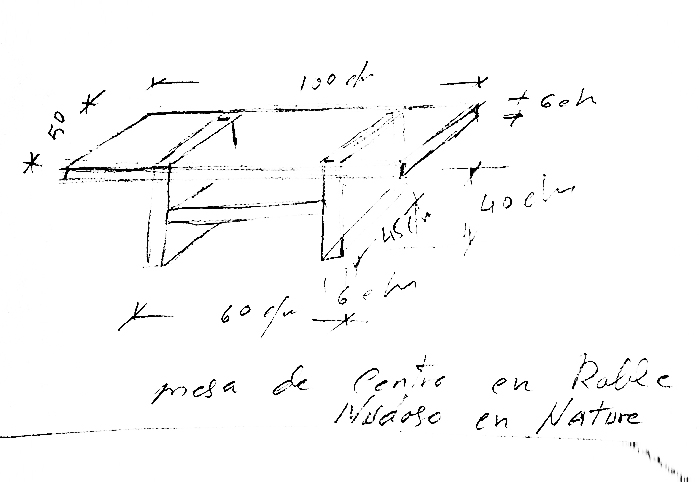 100 cm
50
6 cm
40 cm
45 cm
6 cm
60 cm
mesa de Centro en Roble
Nudoso en Nature